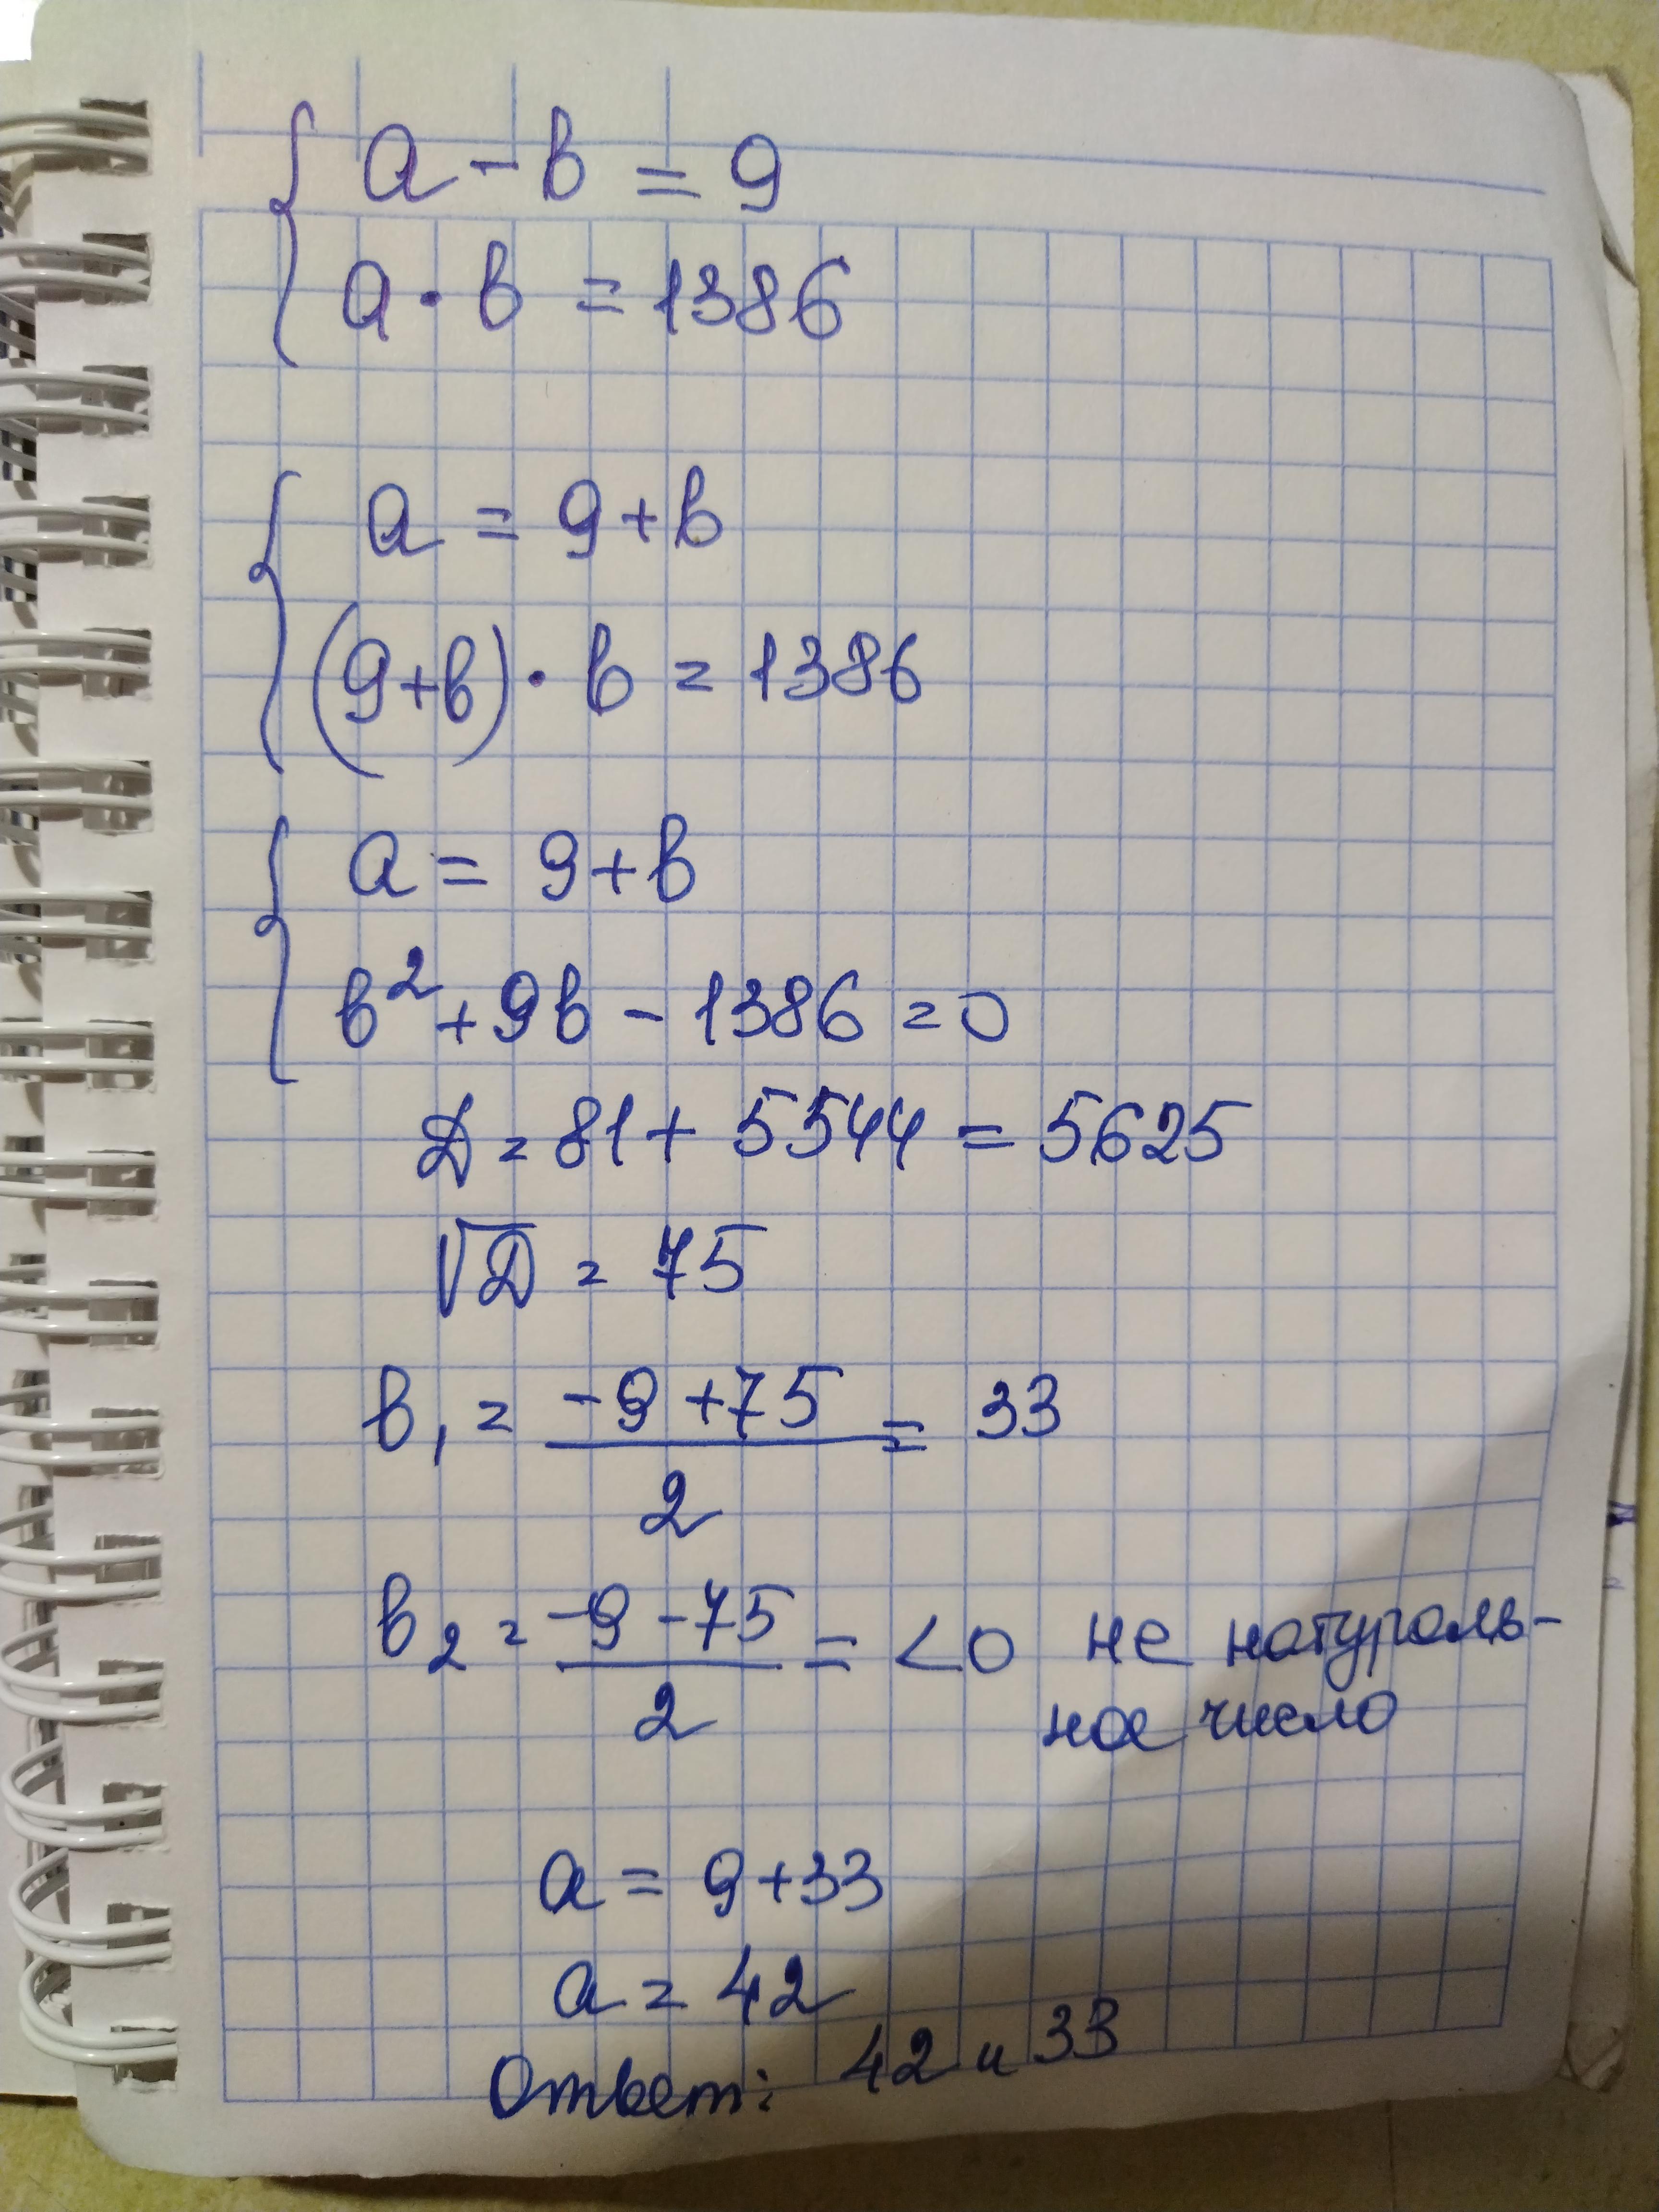 a - b = 9
a · b = 1386
a = 9 + b
(9+b) · b = 1386
a = 9 + b
b² + 9b - 1386 = 0
D = 81 + 5544 = 5625
√D = 75
b₁ = (-9 + 75)/2 = 33
b₂ = (-9 - 75)/2 = < 0 не натураль-
ное число
a = 9 + 33
a = 42
Ответ: 42 и 33